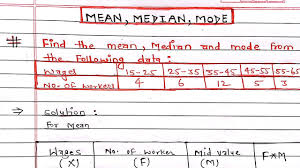 MEAN, MEDIAN, MODE
# Find the mean, Median and mode from
the following data:
Wages 15-25 25-35 35-45 45-55 55-65
No. of workers 4 6 12 5 3
→ Solution:
For Mean
Wages (X) No. of worker (F) Mid value (M) F×M